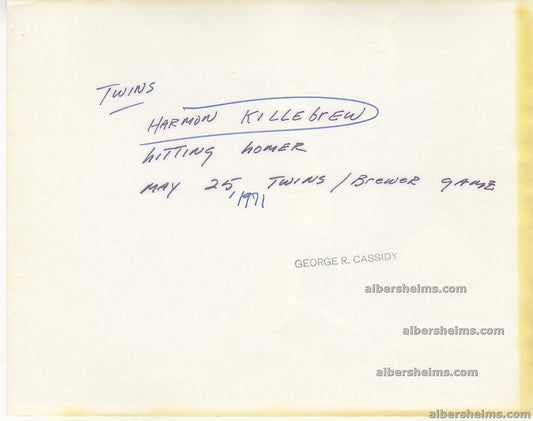 TWINS
HARMON KILLEbrEW
hITTING homER
MAY 25, 1971 TWINS / BrewER GAME
GEORGE R. CASSIDY
albersheims.com
albersheims.com
albersheims.com
albersheims.com